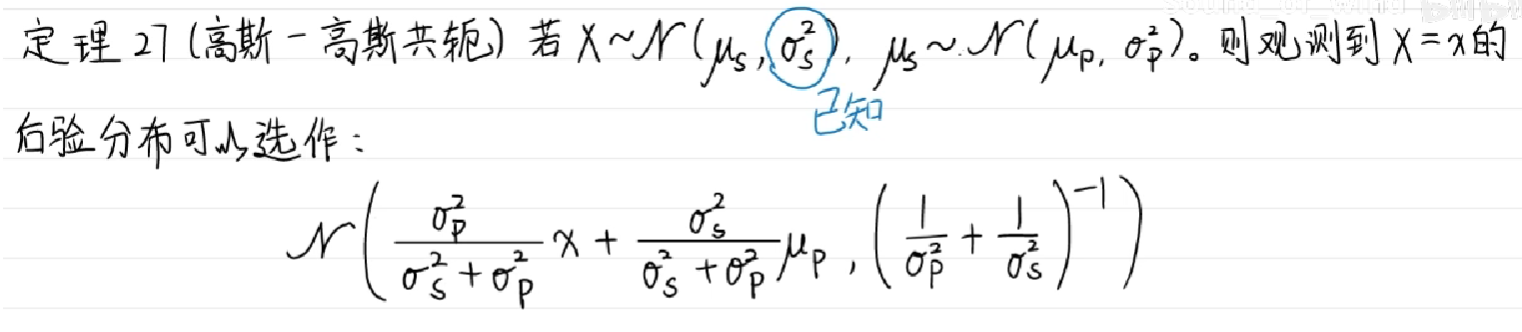 定理 27 (高斯-高斯共轭) 若 X~𝒩(μ_s, σ_s²), μ_s~𝒩(μ_p, σ_p²)。则观测到 X=x的
已知
后验分布可以选作:
𝒩( σ_p²/(σ_s²+σ_p²) x + σ_s²/(σ_s²+σ_p²) μ_p , (1/σ_p² + 1/σ_s²)^{-1} )